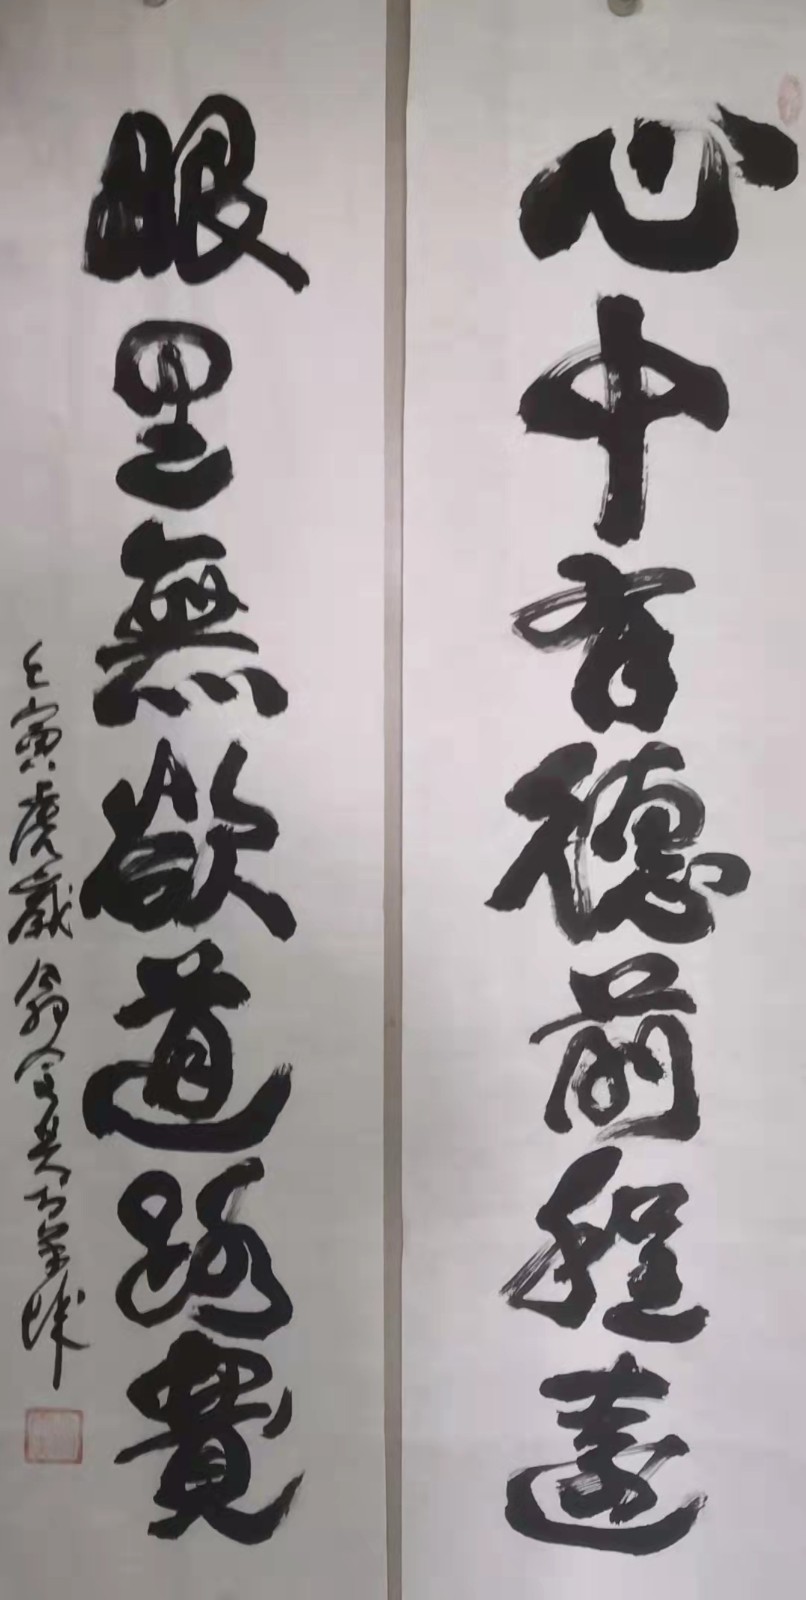 心中有德前程遠
眼里無欲道路寬
壬寅虎歲